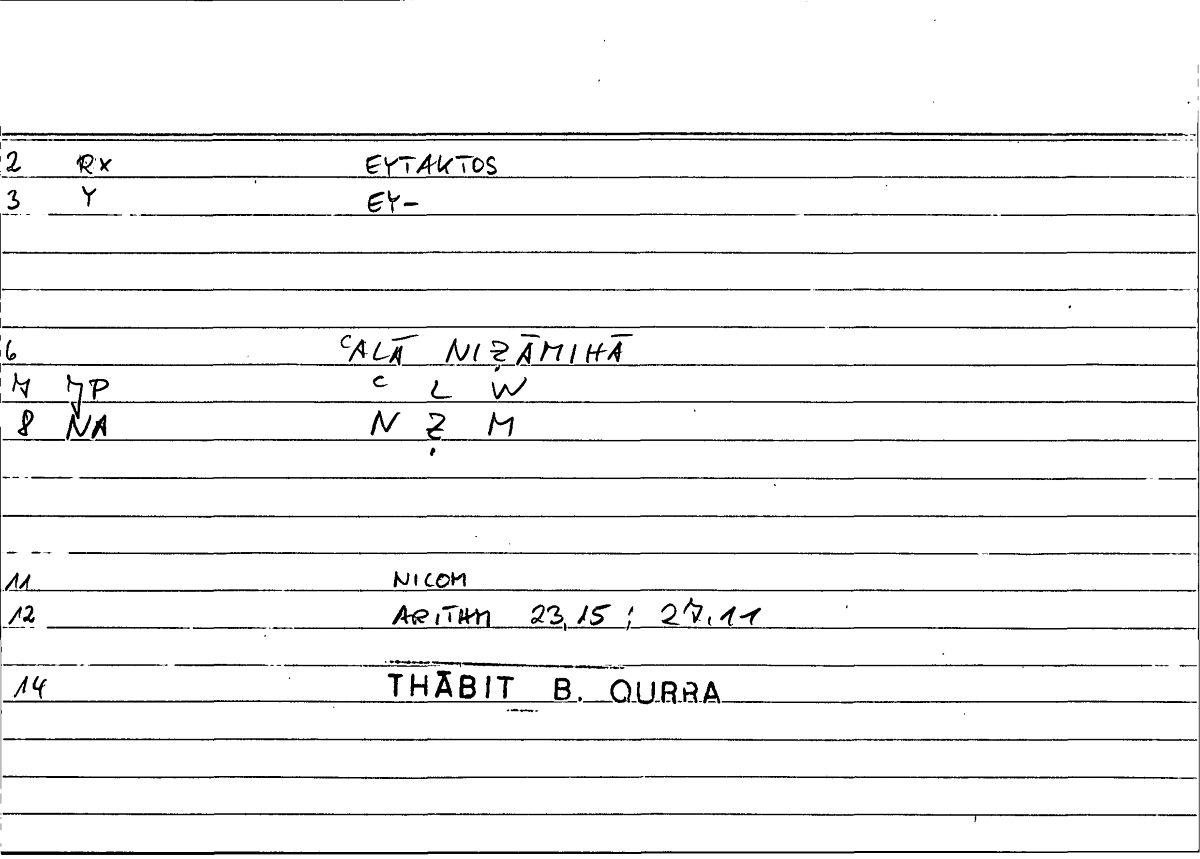 2 RX EYTAKTOS
3 Y EY-
6 ᶜALĀ NIẒĀMIHĀ
7 JP ᶜ L W
8 NA N Ẓ M
11 NICOM
12 ARITHM 23,15 ; 27.11
14 THĀBIT B. QURRA